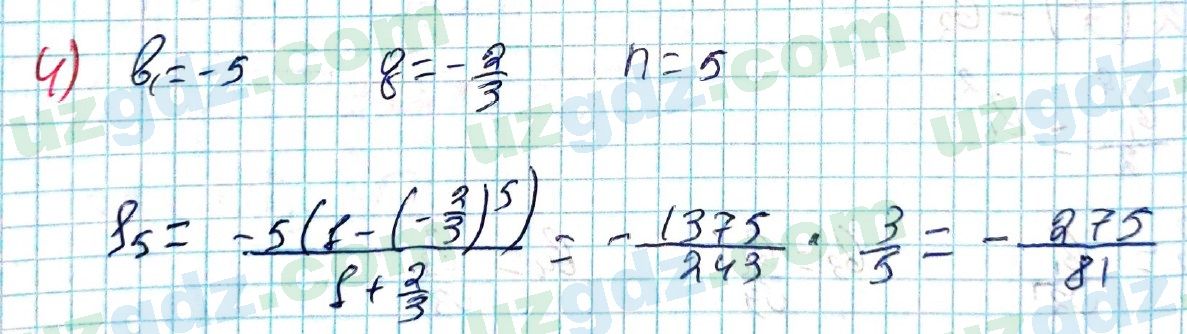 4) b₁ = -5 q = -2/3 n = 5
S₅ = -5(1-(-2/3)^5) / 1+2/3 = -1375/243 · 3/5 = -275/81
uzgdz.com uzgdz.com uzgdz.com
uzgdz.com uzgdz.com uzgdz.com